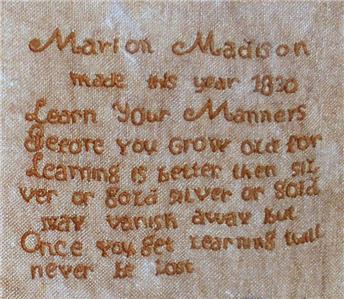 Marion Madison
made this year 1830
Learn Your Manners
Before You Grow Old for
Learning is better then sil
ver or gold silver or gold
may vanish away but
Once you get Learning twill
never be lost